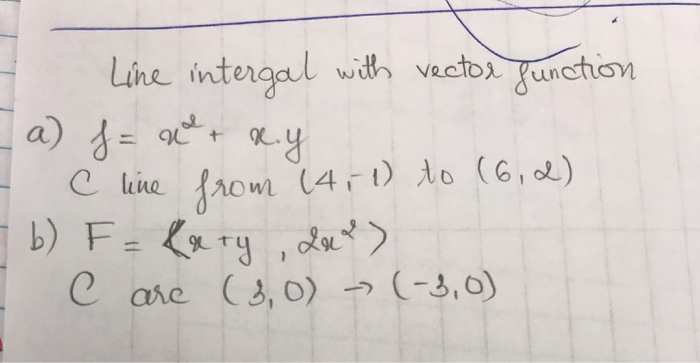 Line intergal with vector function
a) f = x² + x.y
C line from (4,-1) to (6,2)
b) F = <x+y , 2x²>
C arc (3,0) → (-3,0)